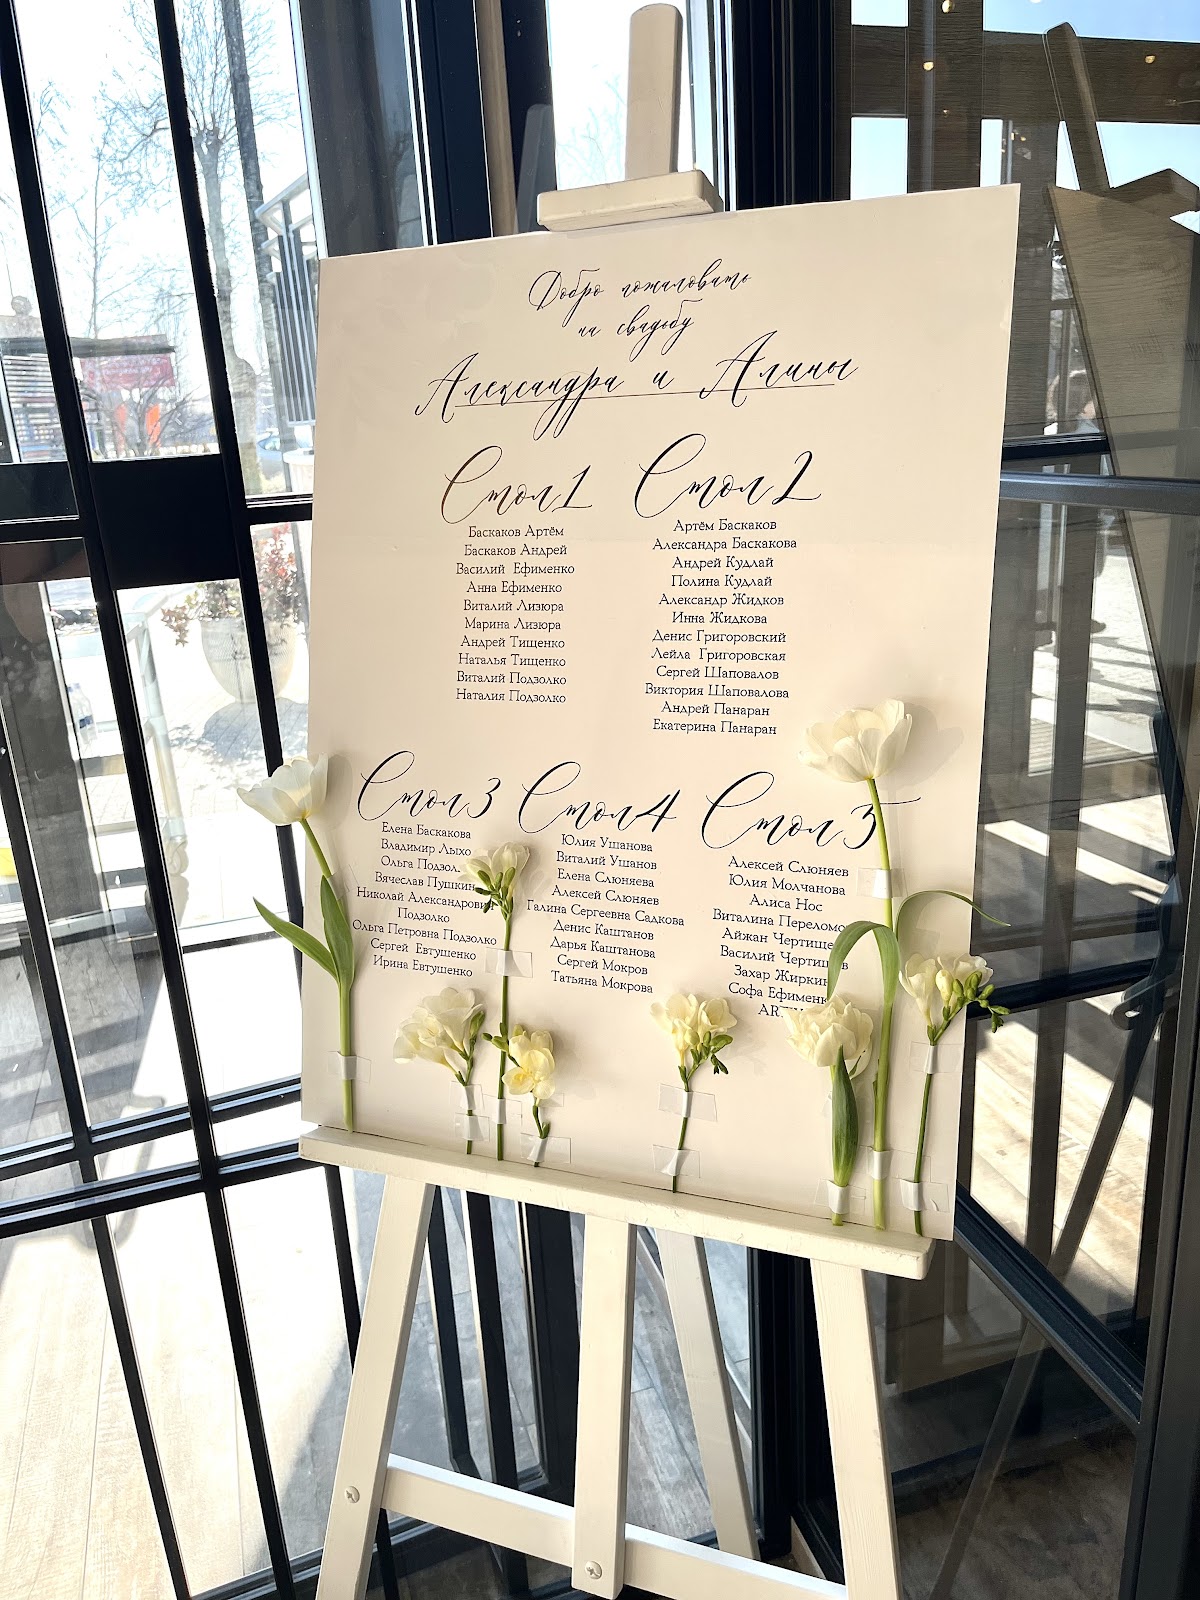 Добро пожаловать
на свадьбу
Александра и Алины
Стол 1
Баскаков Артём
Баскаков Андрей
Василий Ефименко
Анна Ефименко
Виталий Лизюра
Марина Лизюра
Андрей Тищенко
Наталья Тищенко
Виталий Подзолко
Наталия Подзолко
Стол 2
Артём Баскаков
Александра Баскакова
Андрей Кудлай
Полина Кудлай
Александр Жидков
Инна Жидкова
Денис Григоровский
Лейла Григоровская
Сергей Шаповалов
Виктория Шаповалова
Андрей Панаран
Екатерина Панаран
Стол 3
Елена Баскакова
Владимир Лыхо
Ольга
Вячеслав Пушкин
Николай Александрович
Подзолко
Ольга Петровна Подзолко
Сергей Евтушенко
Ирина Евтушенко
Стол 4
Юлия Ушанова
Виталий Ушанов
Елена Слюняева
Алексей Слюняев
Галина Сергеевна Садкова
Денис Каштанов
Дарья Каштанова
Сергей Мокров
Татьяна Мокрова
Стол 5
Алексей Слюняев
Юлия Молчанова
Алиса Нос
Виталина
Айжан
Василий
Захар
Софа